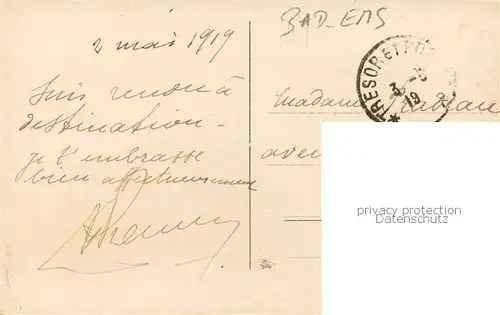 BAD-EMS
2 mai 1919
Suis rendu à
destination -
je t'embrasse
bien affectueusement
TRESOR ET POSTES
3-5
19
Madame
privacy protection
watermark